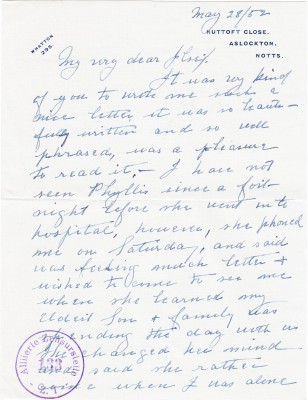 May 28/52
WHATTON
295.
HUTTOFT CLOSE.
ASLOCKTON,
NOTTS.
My very dear
It was very kind
of you to wrote me such a
nice letter, it was so beauti-
fully written and so well
phrased, was a pleasure
to read it, – I have not
seen Phyllis since a fort-
night before she went into
hospital, however, she phoned
me on Saturday, and said
was feeling much better &
wished to come to see me
when she learned my
Eldest Son & family was
spending the day with us
she changed her mind
and said she rather
come when I was alone